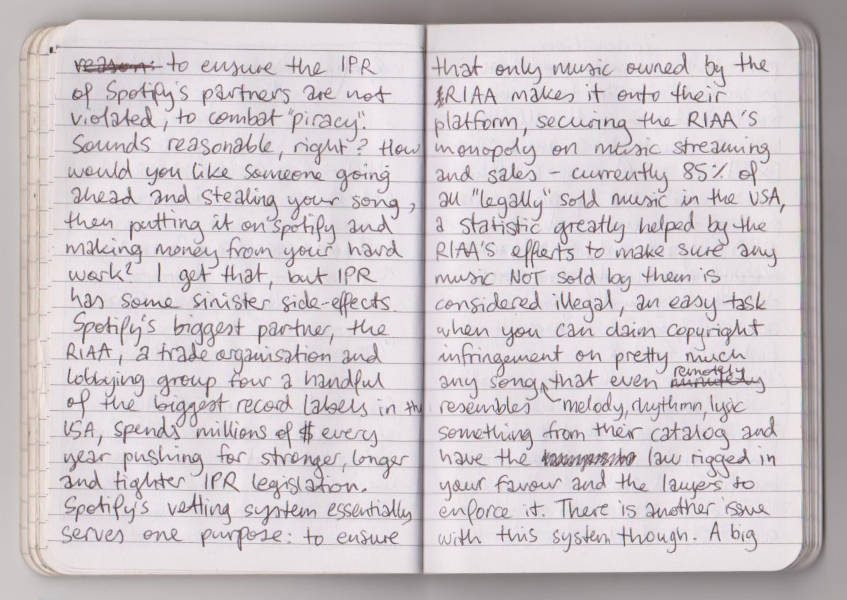 reason: to ensure the IPR
of Spotify's partners are not
violated, to combat "piracy".
Sounds reasonable, right? How
would you like someone going
ahead and stealing your song,
then putting it on spotify and
making money from your hard
work? I get that, but IPR
has some sinister side-effects.
Spotify's biggest partner, the
RIAA, a trade organisation and
lobbying group four a handful
of the biggest record labels in the
USA, spends millions of $ every
year pushing for stronger, longer
and tighter IPR legislation.
Spotify's vetting system essentially
serves one purpose: to ensure
that only music owned by the
RIAA makes it onto their
platform, securing the RIAA'S
monopoly on music streaming
and sales – currently 85% of
all "legally" sold music in the USA,
a statistic greatly helped by the
RIAA'S efforts to make sure any
music NOT sold by them is
considered illegal, an easy task
when you can claim copyright
infringement on pretty much
any song that even remotely
resembles melody, rhythmn, lyric
something from their catalog and
have the law rigged in
your favour and the lawyers to
enforce it. There is another issue
with this system though. A big